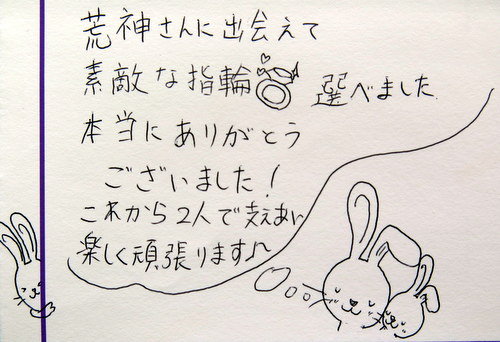 荒神さんに出会えて
素敵な指輪 選べました
本当にありがとう
ございました!
これから2人で支えあい
楽しく頑張ります♪